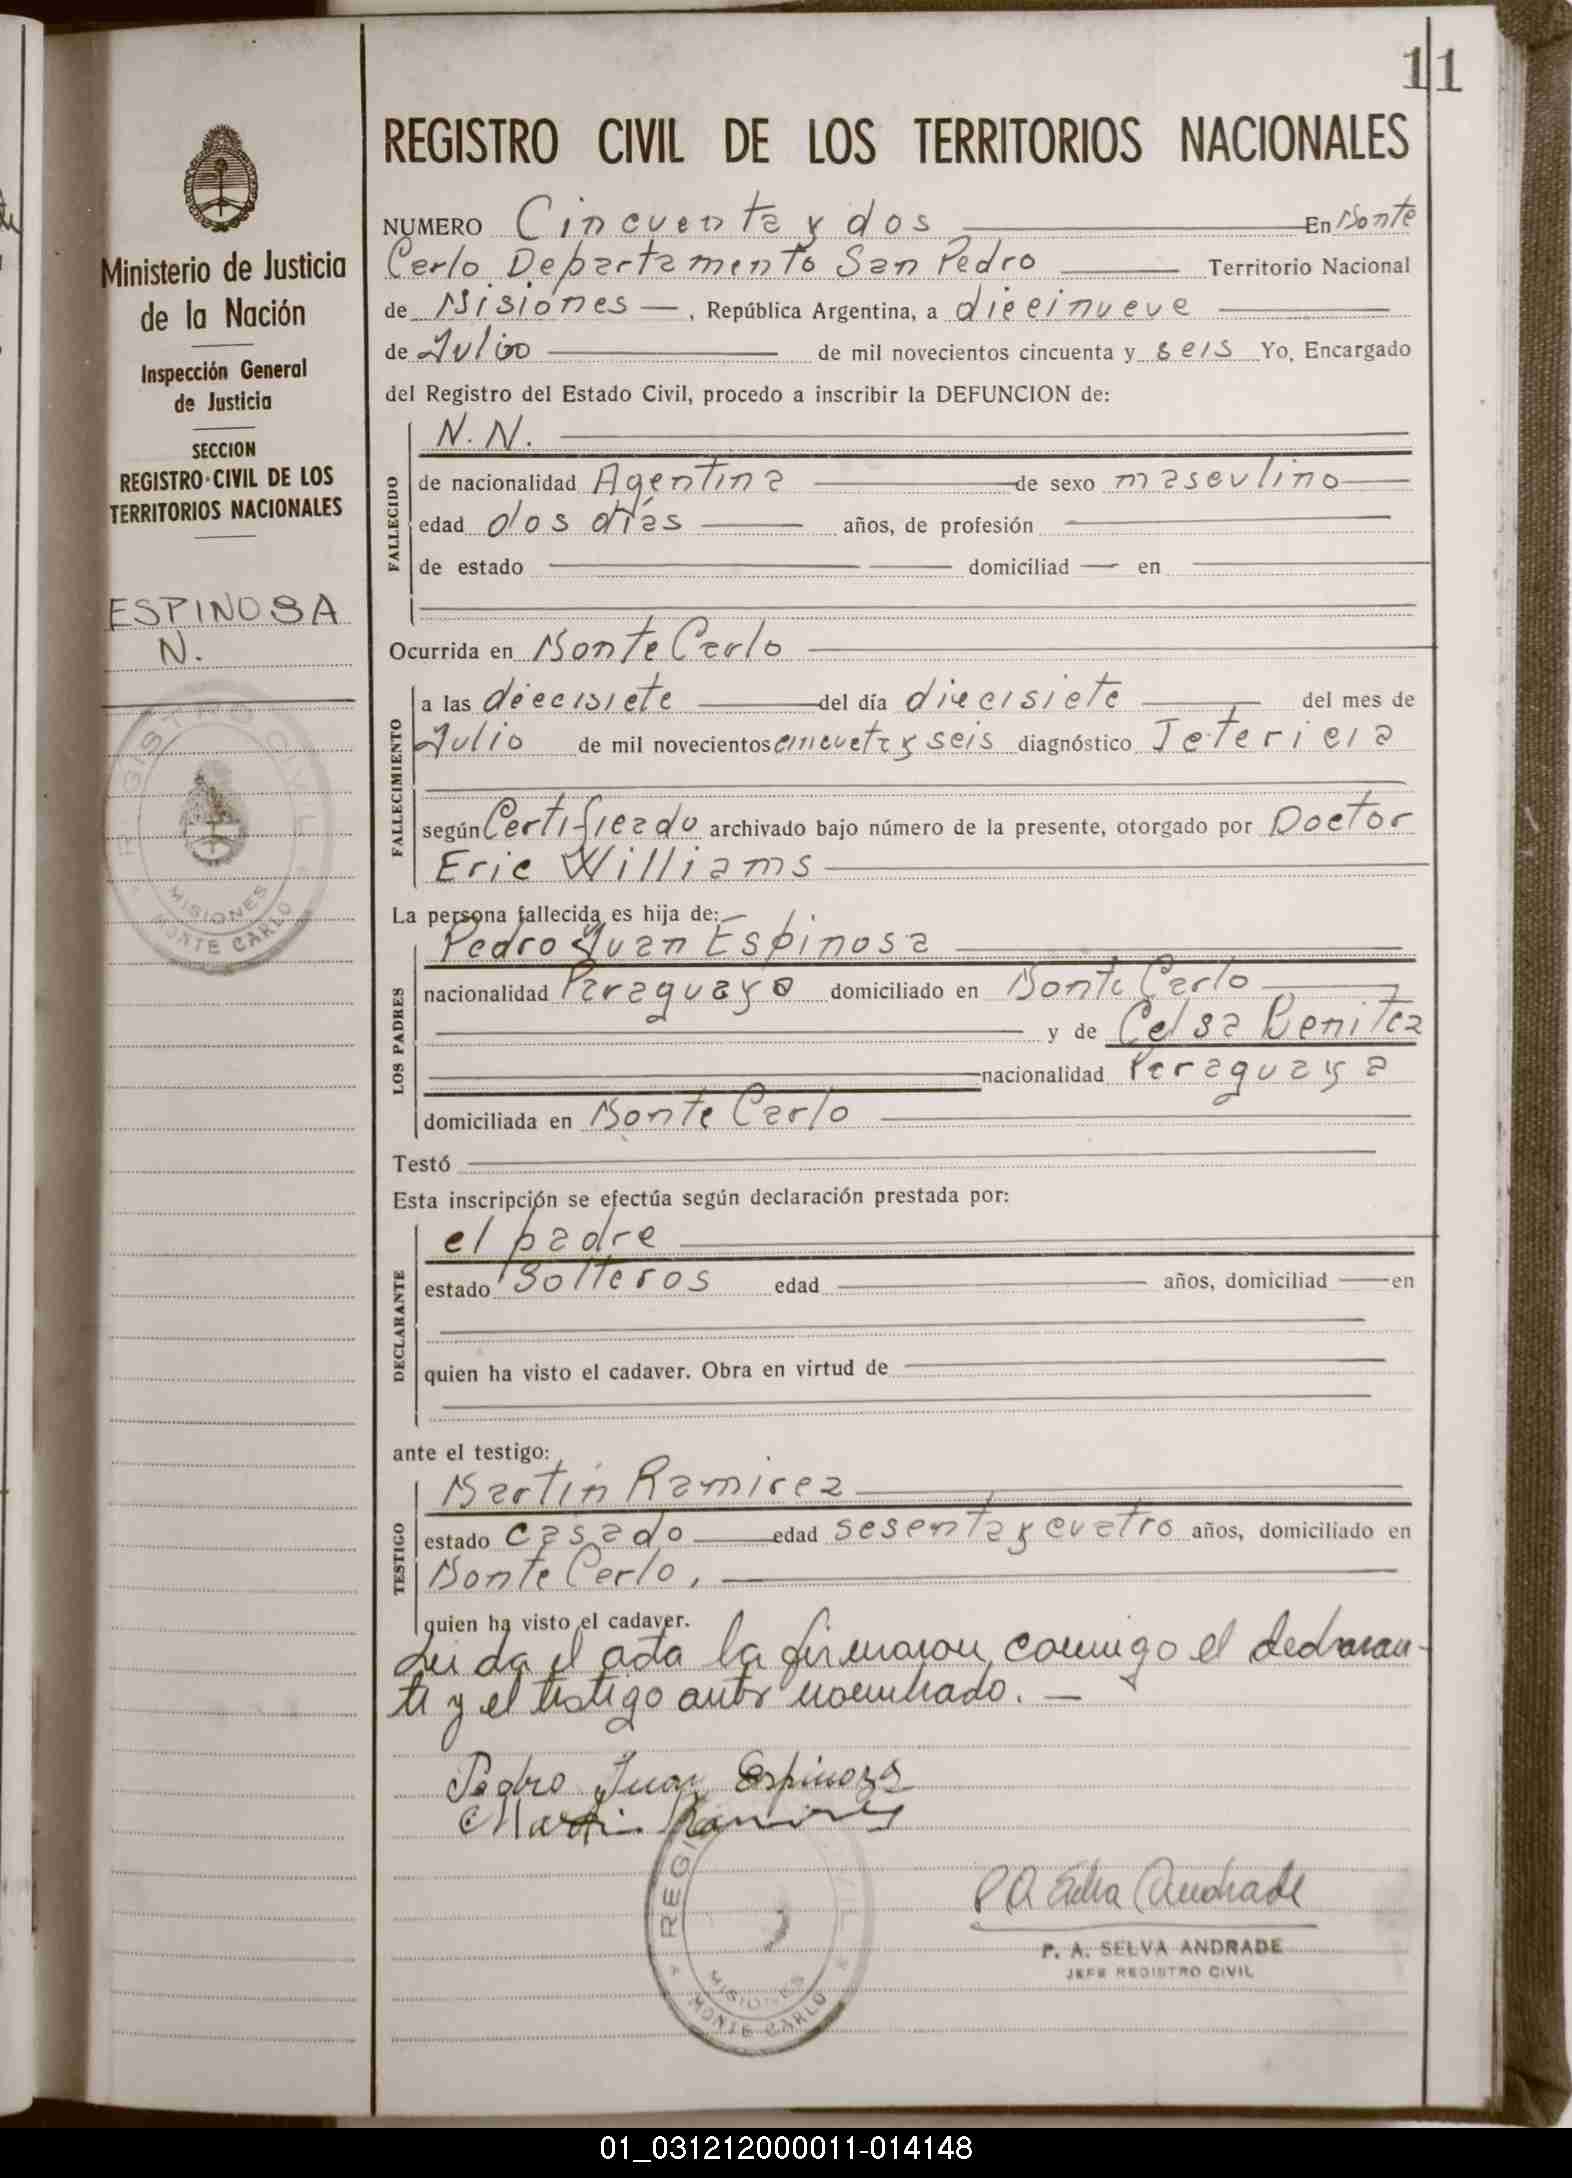 11
REGISTRO CIVIL DE LOS TERRITORIOS NACIONALES
Ministerio de Justicia
de la Nación
Inspección General
de Justicia
SECCION
REGISTRO CIVIL DE LOS
TERRITORIOS NACIONALES
ESPINOSA
N.
REGISTRO CIVIL
MISIONES
MONTE CARLO
NUMERO Cincuenta y dos En Monte
Carlo Departamento San Pedro Territorio Nacional
de Misiones, República Argentina, a diecinueve
de Julio de mil novecientos cincuenta y seis Yo, Encargado
del Registro del Estado Civil, procedo a inscribir la DEFUNCION de:
FALLECIDO
N. N.
de nacionalidad Agentina de sexo masculino
edad dos días años, de profesión
de estado domiciliad en
Ocurrida en Monte Carlo
FALLECIMIENTO
a las diecisiete del día diecisiete del mes de
Julio de mil novecientos cincueta y seis diagnóstico Ictericia
según Certificado archivado bajo número de la presente, otorgado por Doctor
Eric Williams
La persona fallecida es hija de:
LOS PADRES
Pedro Juan Espinosa
nacionalidad Paraguayo domiciliado en Monte Carlo
y de Celsa Benitez
nacionalidad Paraguaya
domiciliada en Monte Carlo
Testó
Esta inscripción se efectúa según declaración prestada por:
DECLARANTE
el padre
estado Solteros edad años, domiciliad en
quien ha visto el cadaver. Obra en virtud de
ante el testigo:
TESTIGO
Martin Ramirez
estado casado edad sesenta y cuatro años, domiciliado en
Monte Carlo.
quien ha visto el cadaver.
Leida el acta la firmaron conmigo el declaran-
te y el testigo antes nombrado. —
Pedro Juan Espinoza
Martin Ramirez
MISIONES
MONTE CARLO
P A Selva Andrade
P. A. SELVA ANDRADE
JEFE REGISTRO CIVIL
01_031212000011-014148